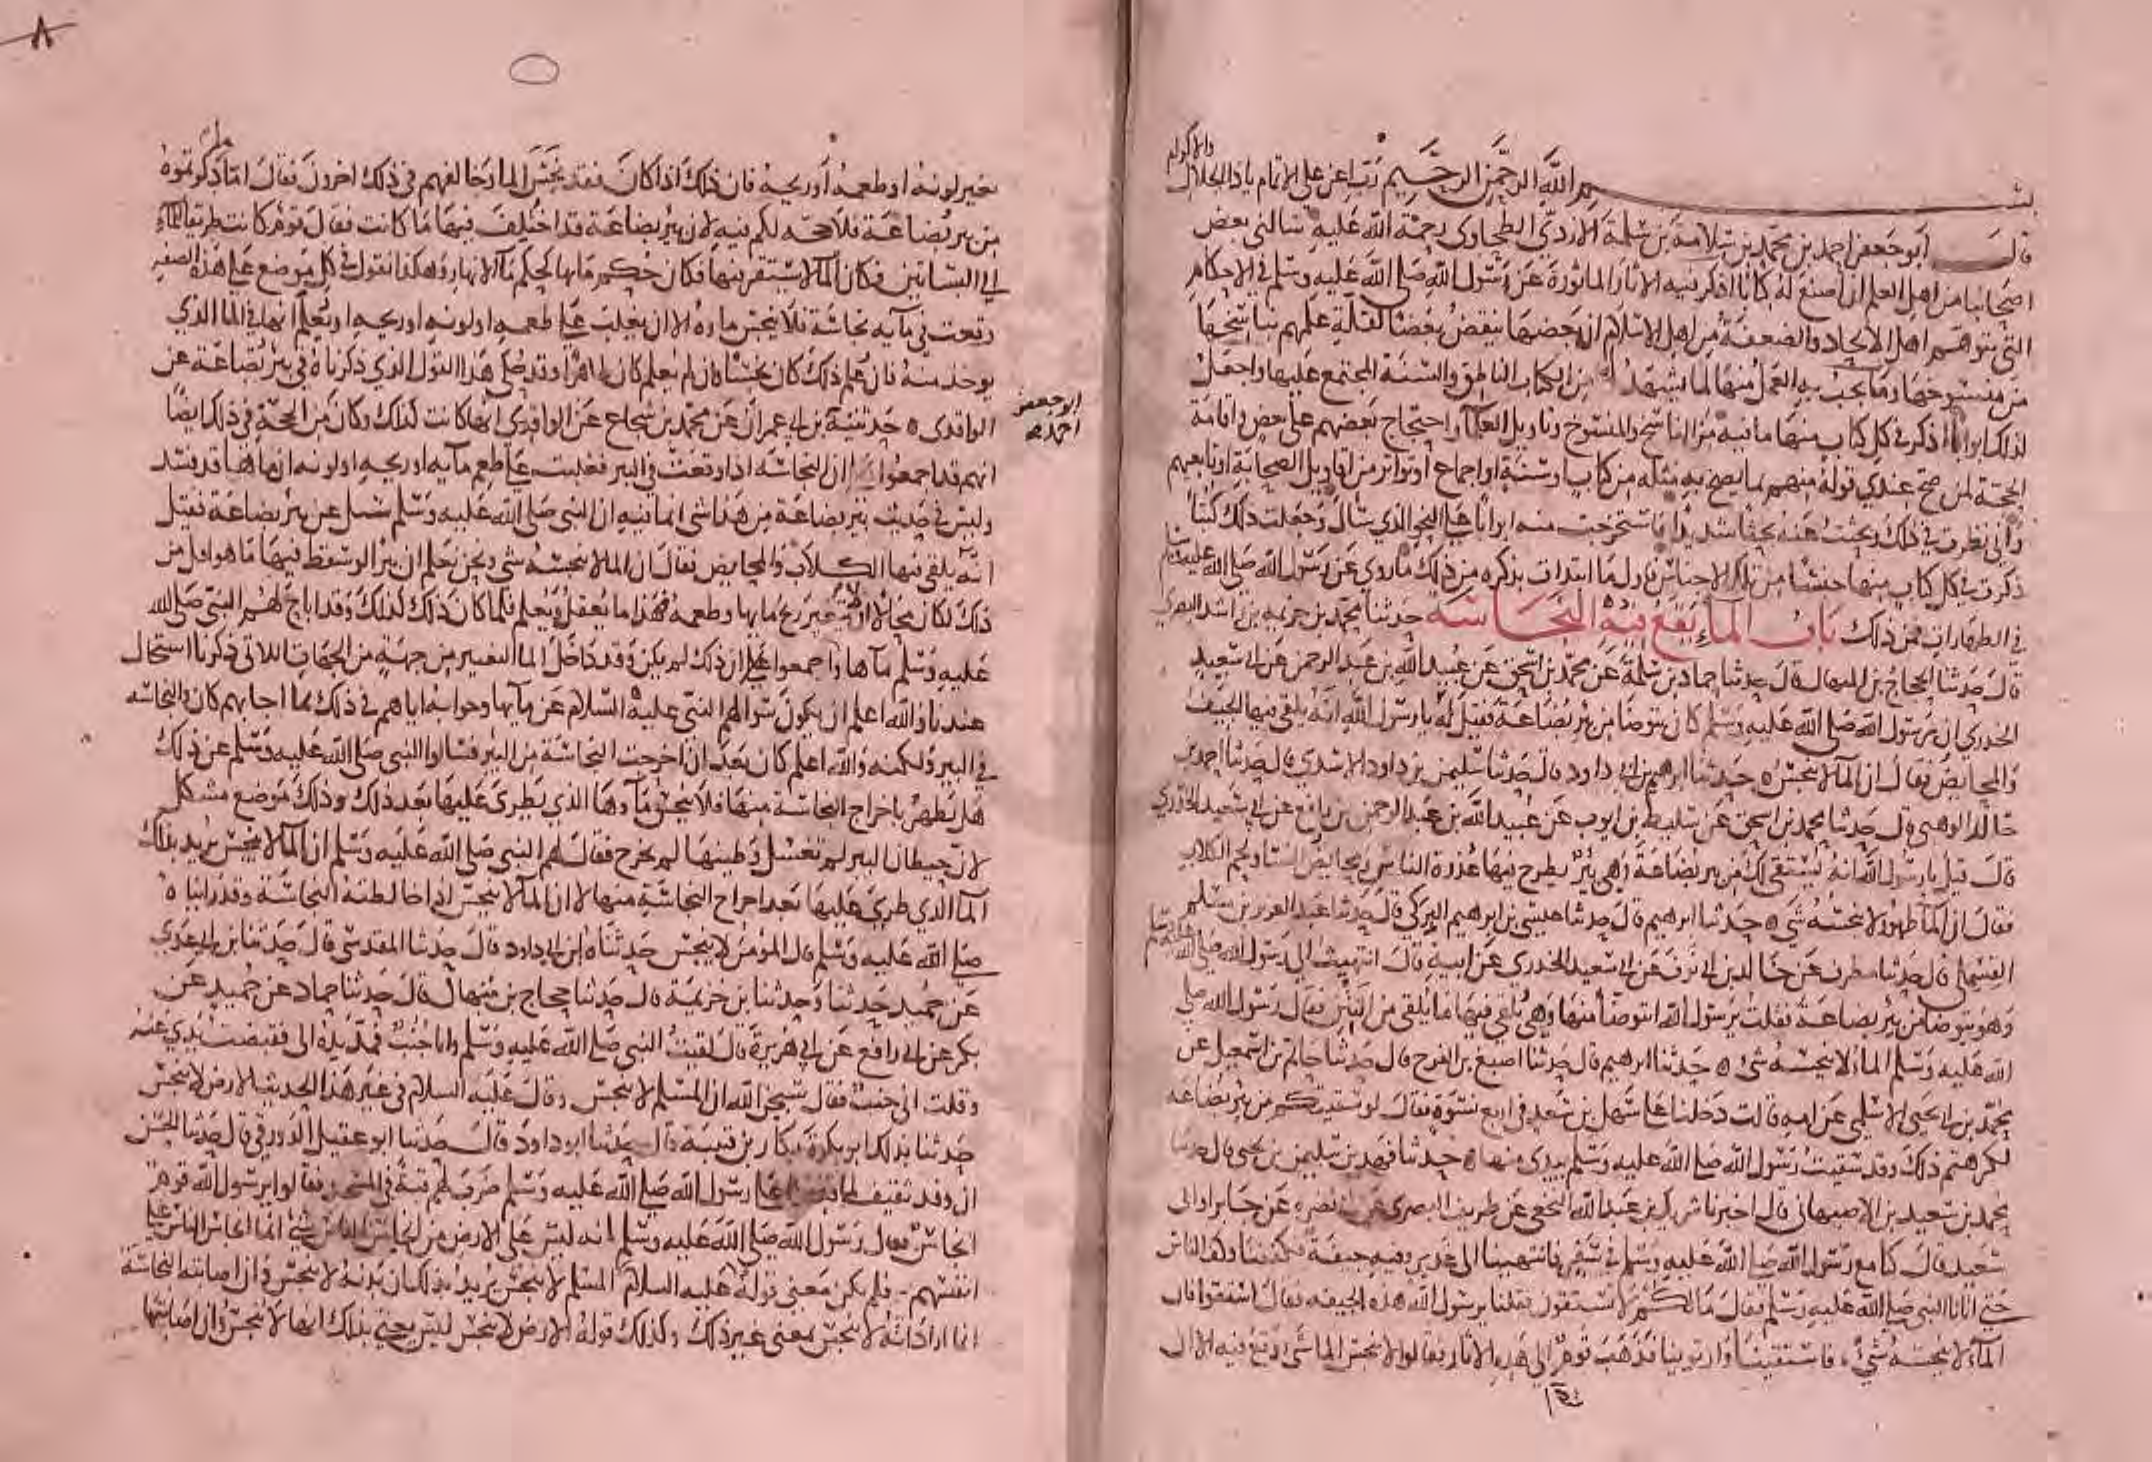 بسم الله الرحمن الرحيم رب اعن على الاتمام ياذا الجلال والاكرام
قال ابو جعفر احمد بن محمد بن سلامة بن سلمة الازدي الطحاوي رحمة الله عليه سالني بعض
اصحابنا من اهل العلم ان اصنع له كتابا اذكر فيه الاثار الماثورة عن رسول الله صلى الله عليه وسلم في الاحكام
التي يتوهم اهل الالحاد والضعفة من اهل الاسلام ان بعضها ينقض بعضا لقلة علمهم بناسخها
من منسوخها وما يجب به العمل منها لما يشهد له من الكتاب الناطق والسنة المجتمع عليها واجعل
لذلك ابوابا اذكر في كل كتاب منها ما فيه من الناسخ والمنسوخ وتاويل العلماء واحتجاج بعضهم على بعض واقامة
الحجة لمن صح عندي قوله منهم بما يصح به مثله من كتاب او سنة او اجماع او تواتر من اقاويل الصحابة او تابعيهم
واني نظرت في ذلك وبحثت عنه بحثا شديدا فاستخرجت منه ابوابا على النحو الذي سال وجعلت ذلك كتبا
ذكرت في كل كتاب منها جنسا من تلك الاجناس فاول ما ابتدات بذكره من ذلك ما روي عن رسول الله صلى الله عليه وسلم
في الطهارات فمن ذلك باب الماء يقع فيه النجاسة حدثنا محمد بن خزيمة بن راشد البصري
قال حدثنا الحجاج بن المنهال قال حدثنا حماد بن سلمة عن محمد بن اسحق عن عبيد الله بن عبد الرحمن عن ابي سعيد
الخدري ان رسول الله صلى الله عليه وسلم كان يتوضا من بئر بضاعة فقيل له يا رسول الله انه يلقى فيها الجيف
والمحايض فقال ان الما لا ينجس ه حدثنا ابرهيم بن ابي داود قال حدثنا سليمن بن داود الاسدي قال حدثنا احمد بن
خالد الوهبي قال حدثنا محمد بن اسحق عن سليط بن ايوب عن عبيد الله بن عبد الرحمن بن رافع عن ابي سعيد الخدري
قال قيل يا رسول الله انه يستقى لك من بير بضاعة وهي بئر يطرح فيها عذرة الناس ومحايض النسا ولحم الكلاب
فقال ان الما طهور لا ينجسه شي ه حدثنا ابرهيم قال حدثنا عيسى بن ابرهيم البركي قال حدثنا عبد العزيز بن مسلم
القسملي قال حدثنا مطرف عن خالد بن ابي نوف عن ابن ابي سعيد الخدري عن ابيه قال انتهيت الى رسول الله صلى الله عليه وسلم
وهو يتوضا من بئر بضاعة فقلت يرسول الله اتتوضا منها وهي يلقى فيها ما يلقى من النتن فقال رسول الله صلى
الله عليه وسلم الماء لا ينجسه شئ ه حدثنا ابرهيم قال حدثنا اصبغ بن الفرج قال حدثنا حاتم بن اسمعيل عن
محمد بن ابي يحيى الاسلمي عن امه قالت دخلنا على سهل بن سعد في اربع نسوة فقال لو سقيتكم من بئر بضاعة
لكرهتم ذلك وقد سقيت رسول الله صلى الله عليه وسلم بيدي منها ه حدثنا فهد بن سليمن بن يحيى قال حدثنا
محمد بن سعيد بن الاصبهاني قال اخبرنا شريك بن عبد الله النخعي عن طريف البصري عن ابي نضرة عن جابر او ابي
سعيد قال كنا مع رسول الله صلى الله عليه وسلم في سفر فانتهينا الى غدير وفيه جيفة فكففنا وكف الناس
حتى اتانا النبي صلى الله عليه وسلم فقال ما لكم لا تستقون فقلنا يرسول الله هذه الجيفه فقال استقوا فان
الماء لا ينجسه شئ، فاستقينا وارتوينا فذهب قوم الى هذه الاثار فقالوا لا ينجس الما شي وقع فيه الا ان
تغير لونه او طعمه او ريحه فان ذلك اذا كان فقد نجس الما وخالفهم في ذلك اخرون فقال اما ما ذكرتموه
من بير بضاعة فلا حجه لكم فيه لان بير بضاعة قد اختلف فيها ما كانت فقال قوم كانت طريقا للماء
الى البساتين فكان الما لا يستقر فيها فكان حكم مائها كحكم ما الانهار وهكذا نقول في كل موضع على هذه الصفه
وقعت في مايه نجاسة فلا ينجس ماوه الا ان يغلب على طعمه او لونه او ريحه او يعلم انها في الما الذي
يوخذ منه فان علم ذلك كان نجسا وان لم يعلم كان طاهرا وقد حكي هذا القول الذي ذكرناه في بئر بضاعة عن
الواقدي ه حدثنيه ابن ابي عمران عن محمد بن شجاع عن الواقدي انها كانت كذلك وكان من الحجة في ذلك ايضا
ابو جعفر
احمد
انهم قد اجمعوا ان النجاسه اذا وقعت في البير فغلبت على طعم مايه او ريحه او لونه ان ماها قد فسد
وليس في حديث بئر بضاعة من هذا شي انما فيه ان النبي صلى الله عليه وسلم سئل عن بئر بضاعة فقيل
انه يلقى فيها الكلاب والمحايض فقال ان الما لا ينجسه شي ونحن نعلم ان بئرا لو سقط فيها ما هو اقل من
ذلك لكان محالا ان لا يتغير ريح مايها وطعمه فهذا ما يعقل ويعلم فلما كان ذلك كذلك وقد اباح لهم النبي صلى الله
عليه وسلم ماها واجمعوا على ان ذلك لم يكن وقد داخل الما التغيير من جهة من الجهات اللاتي ذكرنا استحال
عندنا والله اعلم ان يكون سوالهم النبي عليه السلام عن مايها وجوابه اياهم في ذلك بما اجابهم كان والنجاسه
في البير ولكنه والله اعلم كان بعد ان اخرجت النجاسة من البير فسالوا النبي صلى الله عليه وسلم عن ذلك
هل تطهر باخراج النجاسة منها فلا ينجس ماوها الذي يطرى عليها بعد ذلك وذلك موضع مشكل
لان حيطان البير لم تغسل وطينها لم يخرج فقال لهم النبي صلى الله عليه وسلم ان الما لا ينجس يريد بذلك
الما الذي طري عليها بعد اخراج النجاسة منها لا ان الما لا ينجس اذا خالطته النجاسة وقد راينا ه
صلى الله عليه وسلم قال المؤمن لا ينجس حدثناه ابن ابي داود قال حدثنا المقدمي قال حدثنا ابن ابي عدي
عن حميد حدثنا وحدثنا ابن خزيمة قال حدثنا حجاج بن منهال قال حدثنا حماد عن حميد عن
بكر عن ابي رافع عن ابي هريرة قال لقيت النبي صلى الله عليه وسلم وانا جنب فمد يده الي فقبضت يدي عنه
وقلت اني جنب فقال سبحن الله ان المسلم لا ينجس وقال عليه السلام في غير هذا الحديث الارض لا تنجس
حدثنا بذلك ابو بكرة بكار بن قتيبة قال حدثنا ابو داود قال حدثنا ابو عقيل الدورقي قال حدثنا الحسن
ان وفد ثقيف لما قدموا على رسول الله صلى الله عليه وسلم ضرب لهم قبة في المسجد فقالوا يرسول الله قوم
انجاس فقال رسول الله صلى الله عليه وسلم انه ليس على الارض من انجاس الناس شئ انما انجاس الناس على
انفسهم - فلم يكن معنى قوله عليه السلام المسلم لا ينجس يريد بذلك ان بدنه لا ينجس وان اصابته النجاسة
انما اراد انه لا ينجس بمعنى غير ذلك وكذلك قوله الارض لا تنجس ليس يعني بذلك انها لا تنجس وان اصابتها